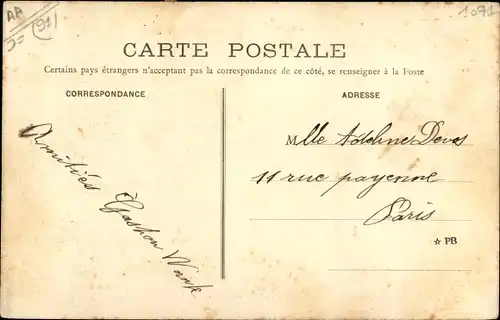 AA
(91)
1071
CARTE POSTALE
Certains pays étrangers n'acceptant pas la correspondance de ce côté, se renseigner à la Poste
CORRESPONDANCE
Amitiés
Gaston
ADRESSE
Mlle Adeline Devos
11 rue payenne
Paris
☆ PB